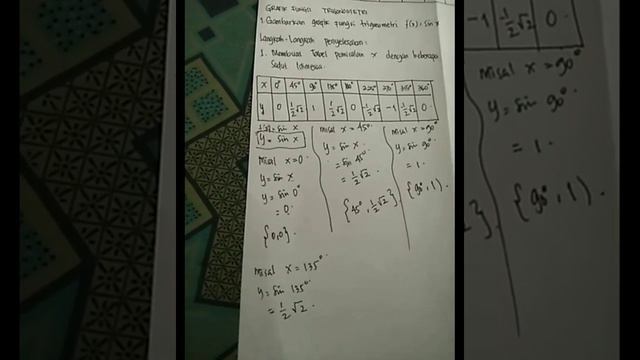 GRAFIK FUNGSI TRIGONOMETRI
1. Gambarkan grafik fungsi trigonometri f(x) = sin x
Langkah-langkah penyelesaian:
1. Membuat Tabel pemisalan x dengan beberapa
Sudut Istimewa.
x 0° 45° 90° 135° 180° 225° 270° 315° 360°
y 0 ½√2 1 ½√2 0 -½√2 -1 -½√2 0
f(x) = sin x
y = sin x
misal x = 0
y = sin x
y = sin 0°
= 0
{0,0}.
misal x = 45°
y = sin x
= sin 45°
= ½√2
{45°, ½√2}
misal x = 90°
y = sin 90°
= 1.
{90°, 1}.
misal x = 135°
y = sin 135°
= ½√2.
-1 -½√2 0
misal x = 90°
y = sin 90°
= 1.
{90°, 1}.